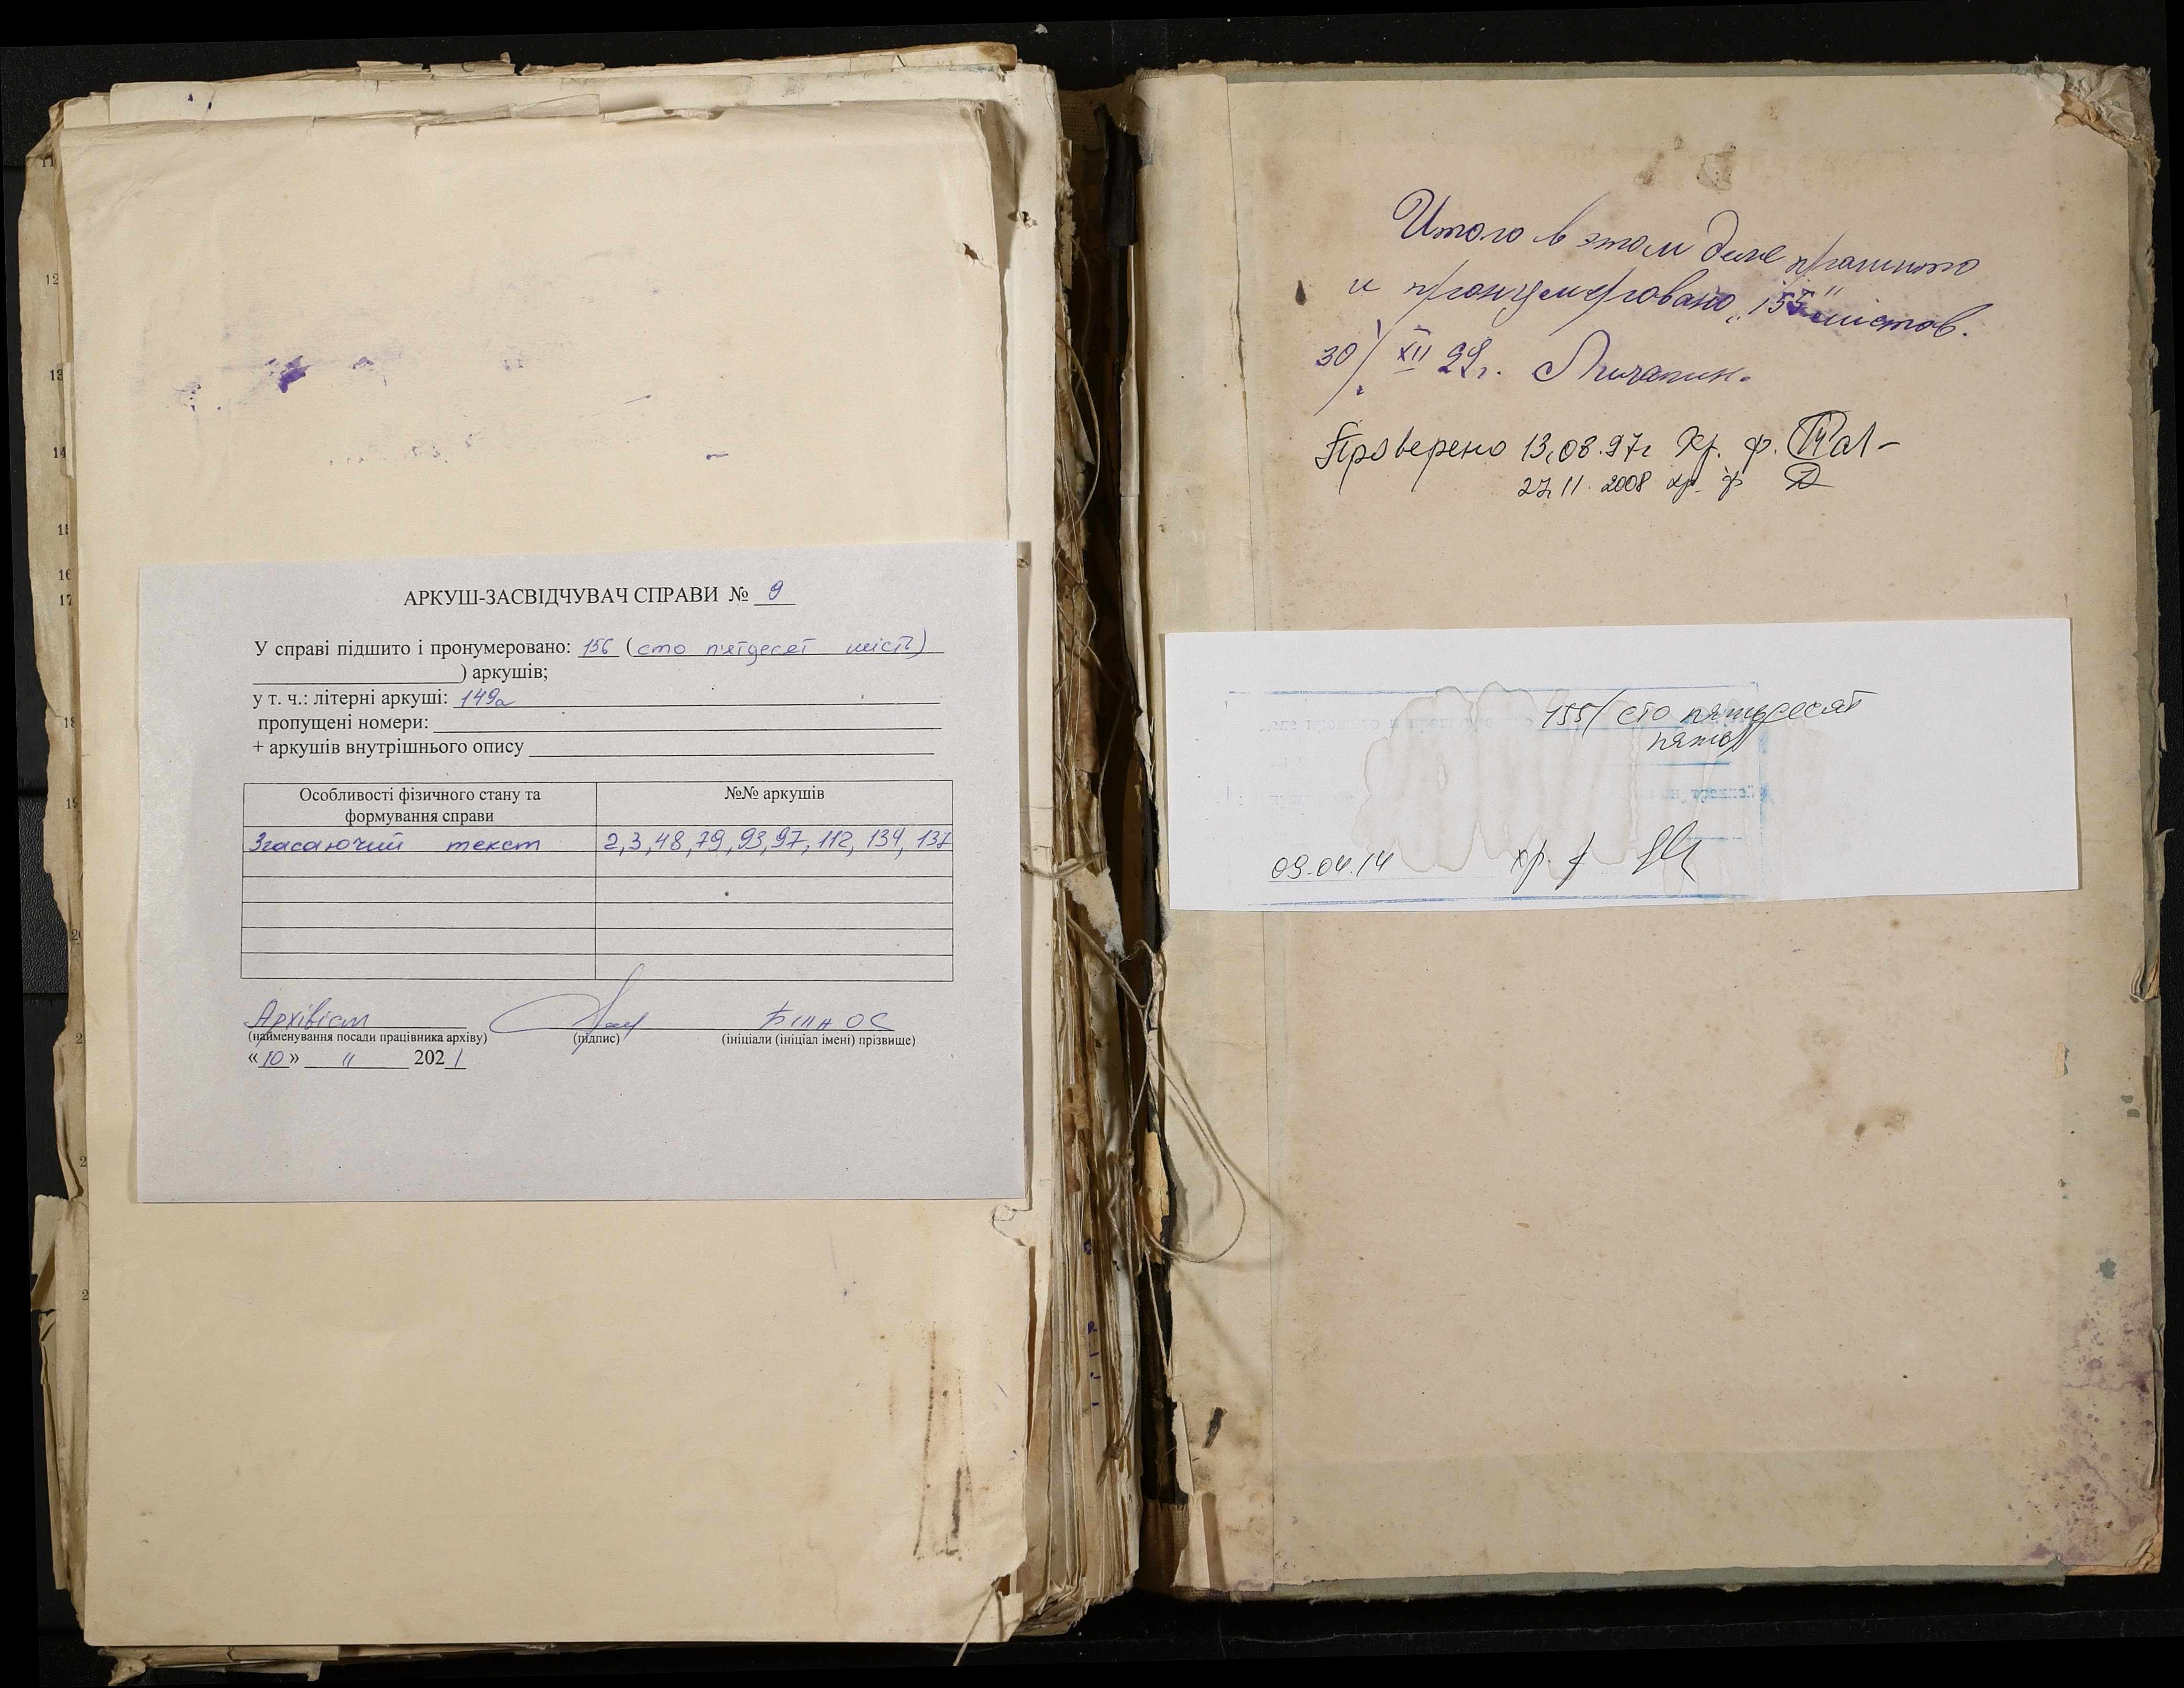 АРКУШ-ЗАСВІДЧУВАЧ СПРАВИ № 9
У справі підшито і пронумеровано: 156 (сто п'ятдесят шість)
) аркушів;
у т. ч.: літерні аркуші: 149а
пропущені номери:
+ аркушів внутрішнього опису
Особливості фізичного стану та формування справи
№№ аркушів
Згасаючий текст 2,3,48,79,93,97,112,134,137
Архівіст
(найменування посади працівника архіву) (підпис) (ініціали (ініціал імені) прізвище)
«10» 11 2021
Итого в этом деле прошито
и пронумеровано „155" листов.
30/XII 29г.
Проверено 13.08.97г Хр. ф.
27.11.2008 хр. ф
155/ сто пятьдесят
пять/
09.04.14 хр. ф
12
13
14
15
16
17
18
19
20